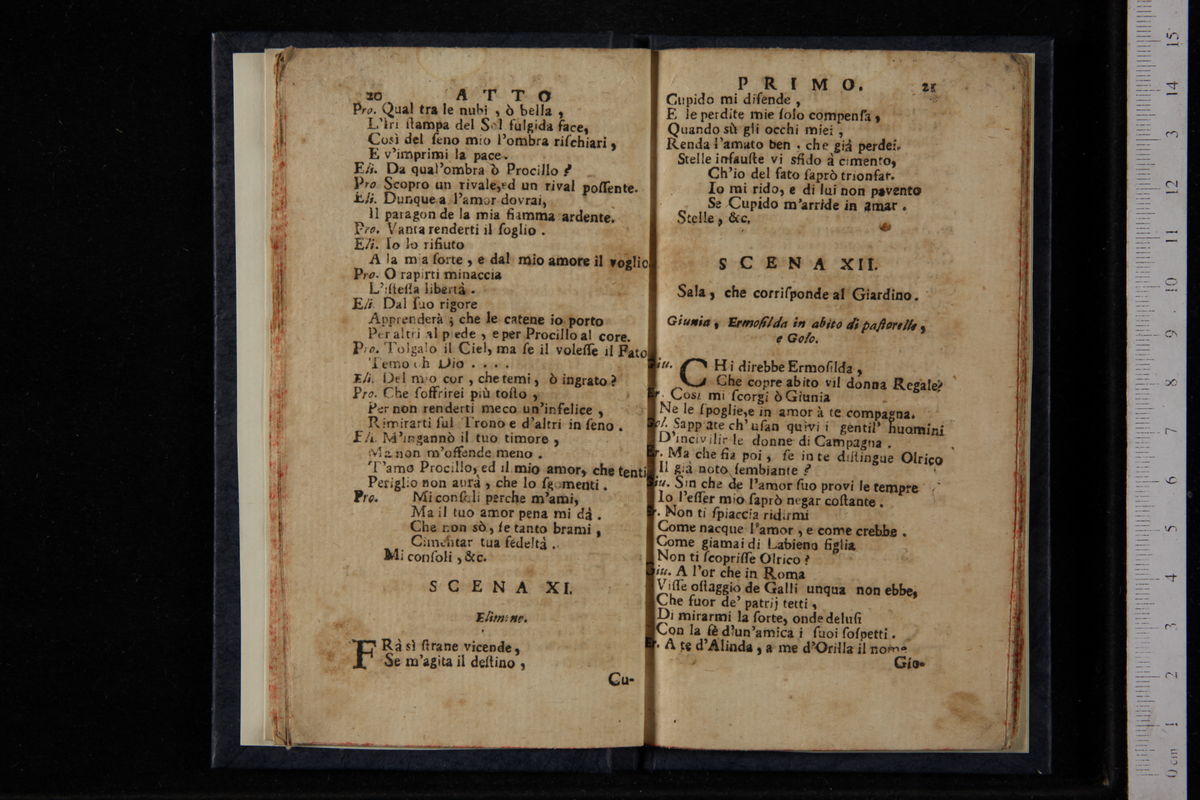 20 ATTO
Pro. Qual tra le nubi, ò bella,
L'Iri ſtampa del Sol fulgida face,
Così del ſeno mio l'ombra riſchiari,
E v'imprimi la pace.
Eli. Da qual'ombra ò Procillo?
Pro Scopro un rivale, ed un rival poſſente.
Eli. Dunque a l'amor dovrai,
Il paragon de la mia fiamma ardente.
Pro. Vanta renderti il ſoglio.
Eli. Io lo rifiuto
A la mia ſorte, e dal mio amore il voglio
Pro. O rapirti minaccia
L'iſteſſa libertà.
Eli. Dal ſuo rigore
Apprenderà; che le catene io porto
Per altri al piede, e per Procillo al core.
Pro. Tolgalo il Ciel, ma ſe il voleſſe il Fato
Temo oh Dio ....
Eli. Del mio cor, che temi, ò ingrato?
Pro. Che ſoffrirei più toſto,
Per non renderti meco un'infelice,
Rimirarti ſul Trono e d'altri in ſeno.
Eli. M'ingannò il tuo timore,
Ma non m'offende meno.
T'amo Procillo, ed il mio amor, che tenti
Periglio non aurà, che lo ſgomenti.
Pro. Mi conſoli perche m'ami,
Ma il tuo amor pena mi dà.
Che non sò, ſe tanto brami,
Cimentar tua fedeltà.
Mi conſoli, &c.
SCENA XI.
Eliſmene.
FRà sì ſtrane vicende,
Se m'agita il deſtino,
Cu-
PRIMO. 21
Cupido mi difende,
E le perdite mie ſolo compenſa,
Quando sù gli occhi miei,
Renda l'amato ben, che già perdei.
Stelle infauſte vi sfido à cimento,
Ch'io del fato ſaprò trionfar.
Io mi rido, e di lui non pavento
Se Cupido m'arride in amar.
Stelle, &c.
SCENA XII.
Sala, che corriſponde al Giardino.
Giunia, Ermoſilda in abito di paſtorelle,
e Goſo.
Giu. CHi direbbe Ermoſilda,
Che copre abito vil donna Regale?
Er. Così mi ſcorgi ò Giunia
Ne le ſpoglie, e in amor à te compagna.
Gol. Sappiate ch'uſan quivi i gentil'huomini
D'incivilir le donne di Campagna.
Er. Ma che fia poi, ſe in te diſtingue Olrico
Il già noto ſembiante?
Giu. Sin che de l'amor ſuo provi le tempre
Io l'eſſer mio ſaprò negar coſtante.
Er. Non ti ſpiaccia ridirmi
Come nacque l'amor, e come crebbe.
Come giamai di Labieno figlia
Non ti ſcopriſſe Olrico?
Giu. A l'or che in Roma
Viſſe oſtaggio de Galli unqua non ebbe,
Che fuor de' patrij tetti,
Di mirarmi la ſorte, onde deluſi
Con la fè d'un'amica i ſuoi ſoſpetti.
Er. A te d'Alinda, a me d'Orilla il nome
Gio-